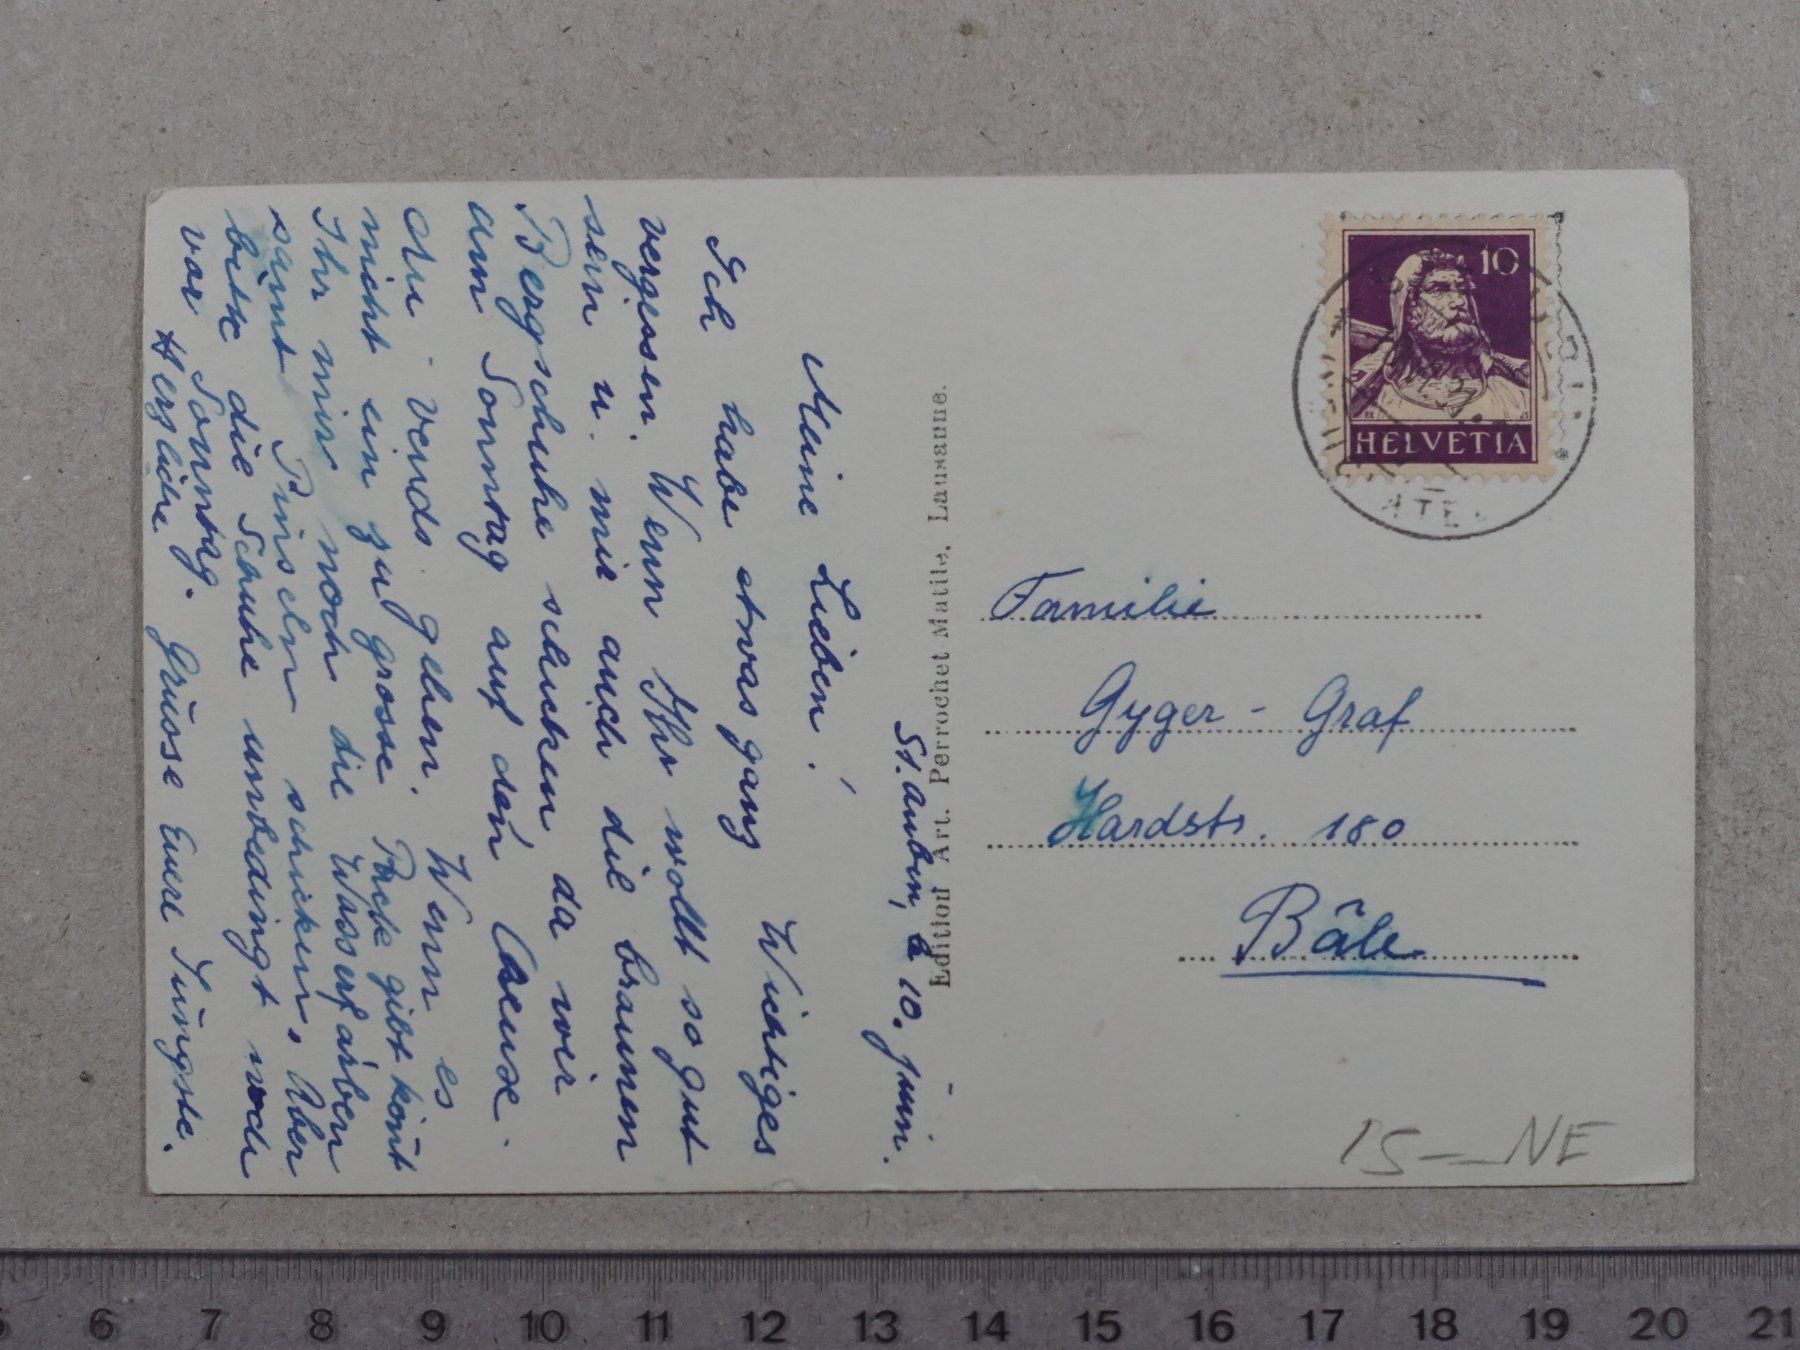 St. Aubin, le 10. Juni.
Meine Lieben!
Ich habe etwas ganz Wichtiges
vergessen. Wenn Ihr wollt so gut
sein u. mir auch die braunen
Bergschuhe schicken da wir
am Sonntag auf den Creux
du vends gehen. Wenn es
nicht ein zu grosse Pack gibt könt
Ihr mir noch die Wasserfarben
samt Pinseln schicken. Aber
bitte die Schuhe unbedingt noch
vor Sonntag.
Herzliche Grüsse Eure Jüngste.
Edition Art. Perrochet Matile, Lausanne.
10
HELVETIA
Familie
Gyger - Graf
Hardstr. 180
Bâle
NE